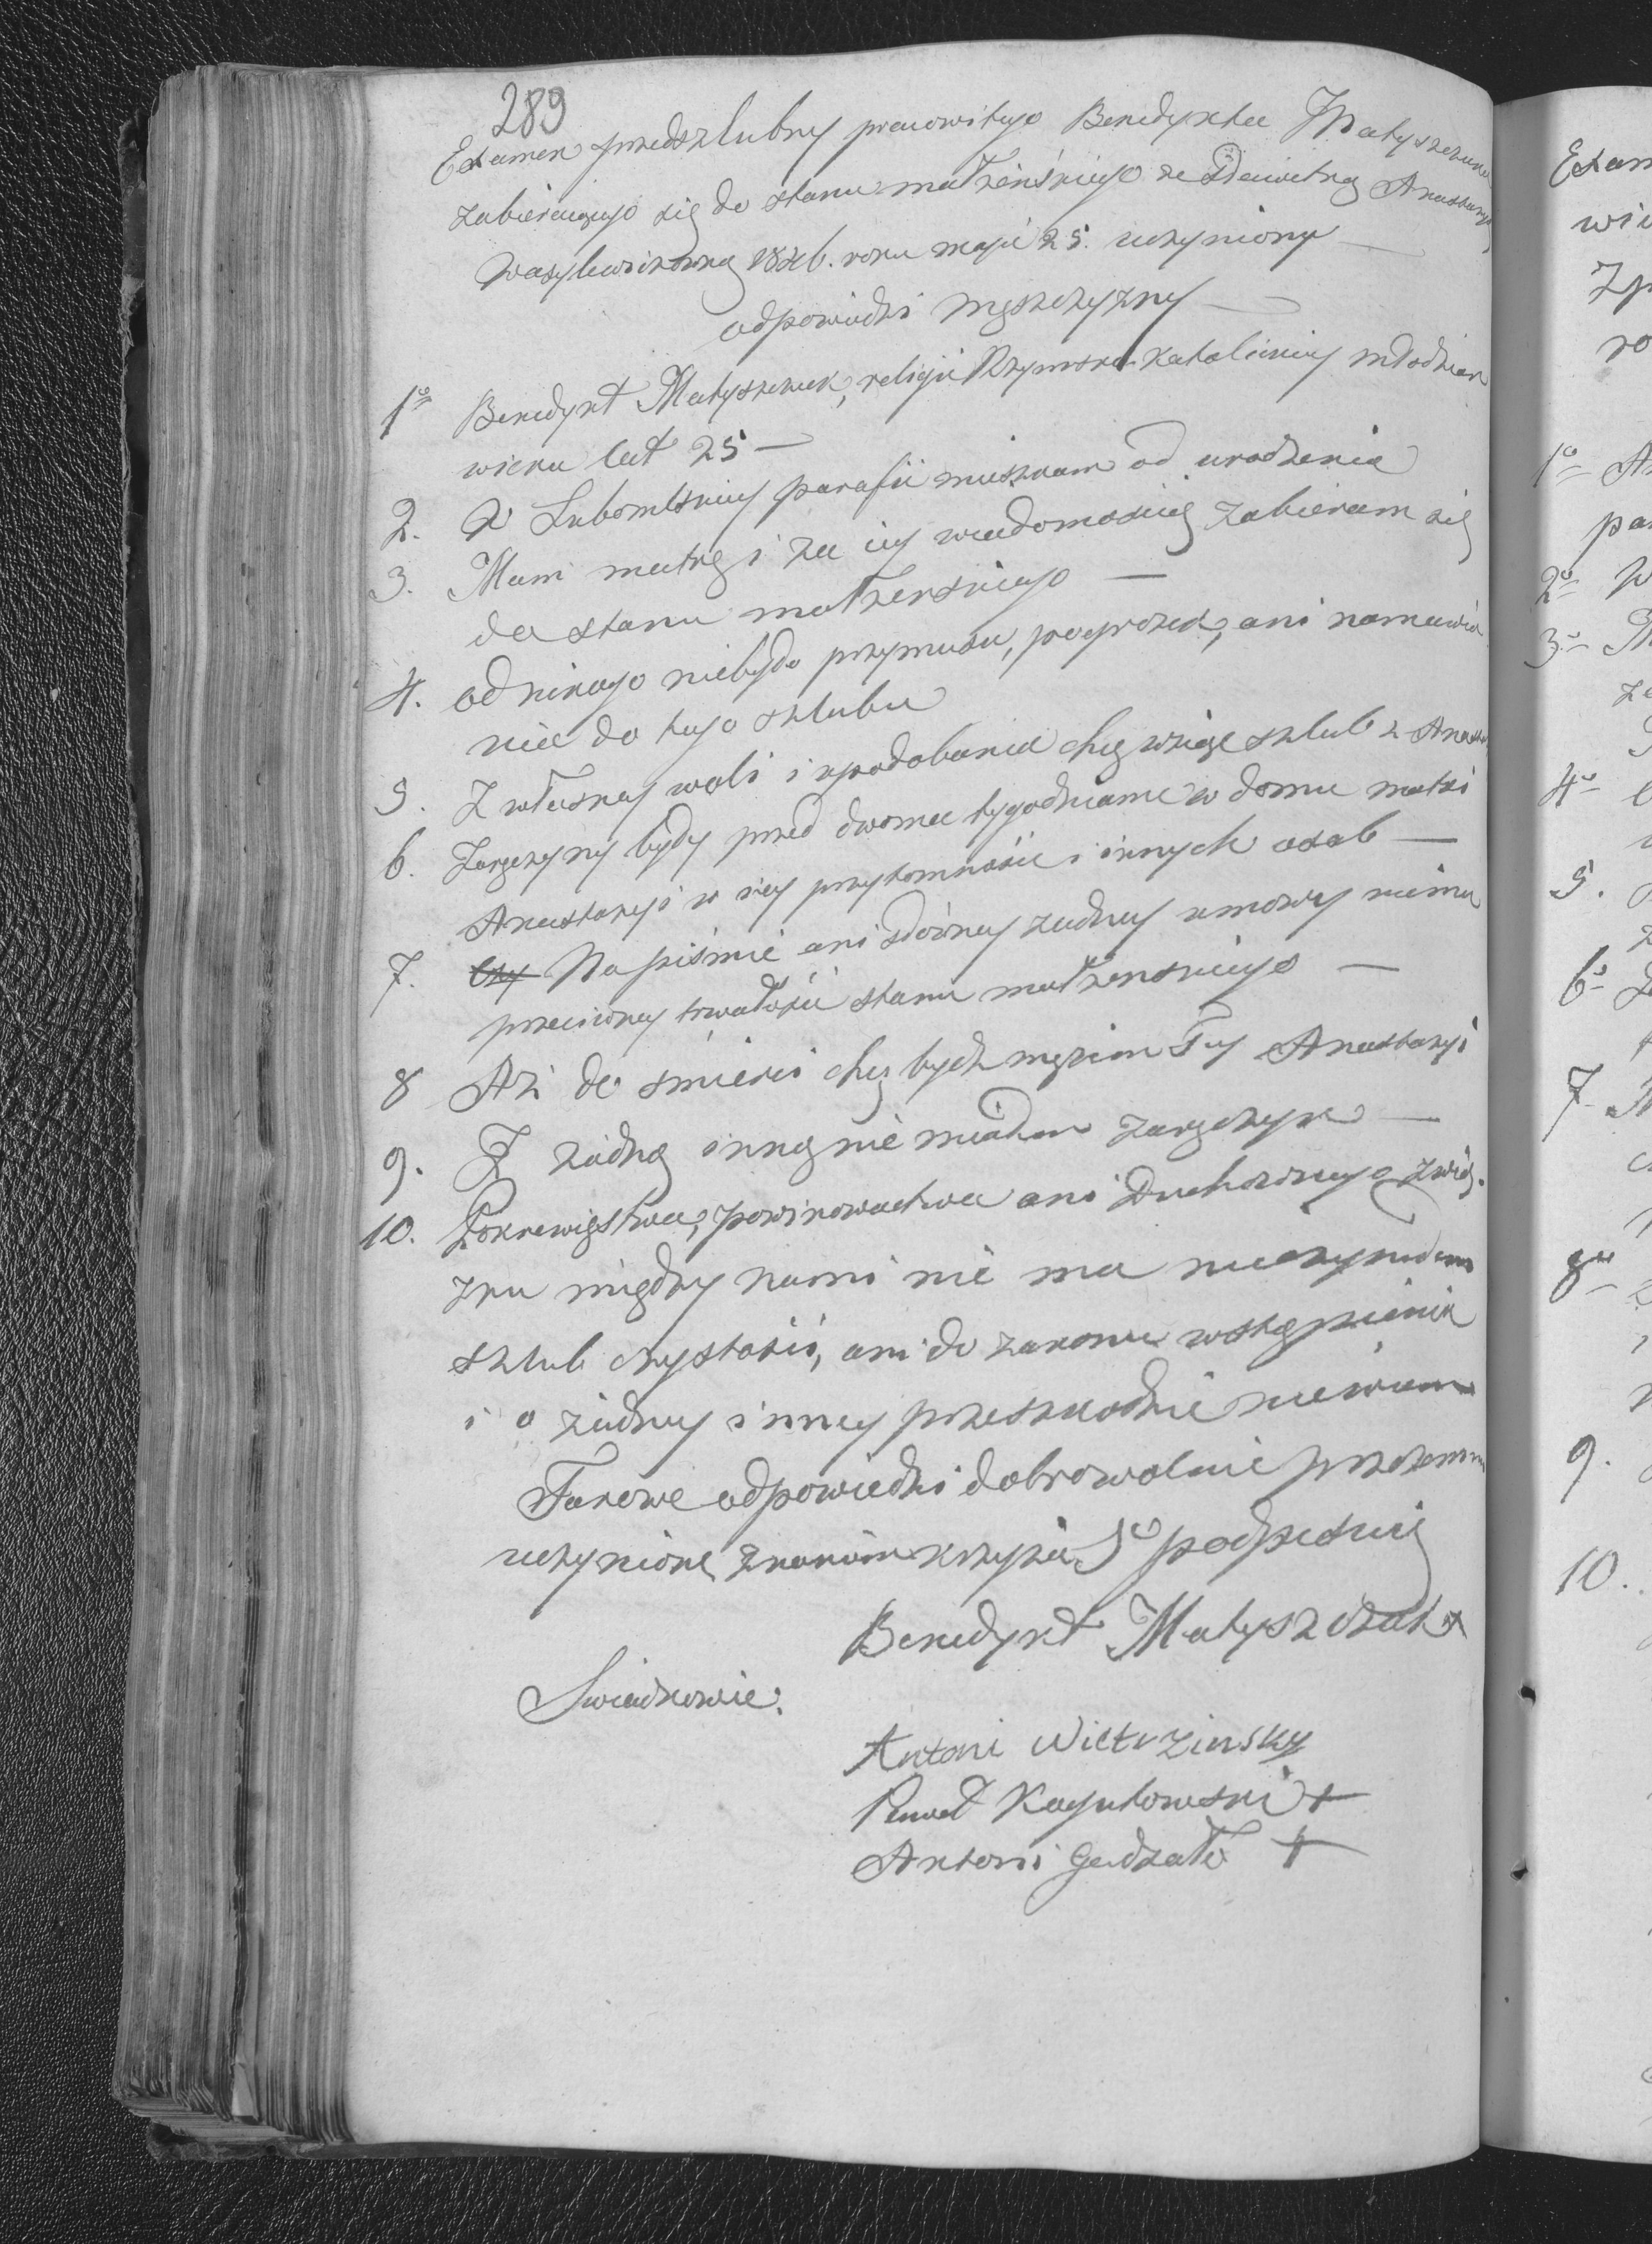 289
Examen przedszlubny pracowitego Benedykta Matyszczuka
zabieraiącego się do stanu małżeńskiego ze Dziewicą Anastazyą
Wasylewiczowną 1826. roku maja 25. uczyniony
odpowiedzi męszczyzny
1o Benedykt Matyszczuk, religii Rzymsko-Katolickiey młodzian
wieku lat 25
2. W Lubomlskiey parafii mieszkam od urodzenia
3. Mam matkę i za iey wiadomością zabieram się
do stanu małżenskiego
4. od nikogo niebyło przymusu, pogrozek, ani namawia
nia do tego szlubu
5. Z własney woli i upodobania chcę wziąć szlub z Anast
6. Zaręczyny były przed dwoma tygodniami w domu matki
Anastazyi w iey przytomności i innych osob
7. Czy Na piśmie ani słowney żadney umowy niema
przeciwney trwałości stanu małżenskiego
8 Aż do śmierci chcę bydź mężem Tey Anastazyi
9. Z żadną inną nie miałem zaręczyn
10. Pokrewięstwa, powinowactwa ani Duchownego zwią-
zku między nami nie ma nieczyniłem
szlub czystości, ani do zakonu wstąpienia
i o żadney inney przeszkodzie niewiem
Takowe odpowiedzi dobrowolnie przezemnie
uczynione znakiem krzyża S° podpisuię
Benedykt Matyszczuk +
Swiadkowie:
Antoni Wietrzinsky
Paweł +
Antoni Gadzało +
Exam
wi
ro
1o A
pa
2o W
3
4
5.
6
7
8
9.
10.